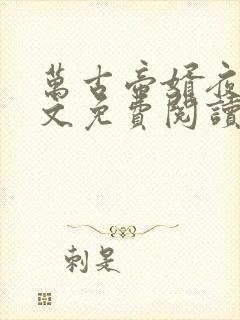 萬古帝婿夜
文免費閱讀
刺是